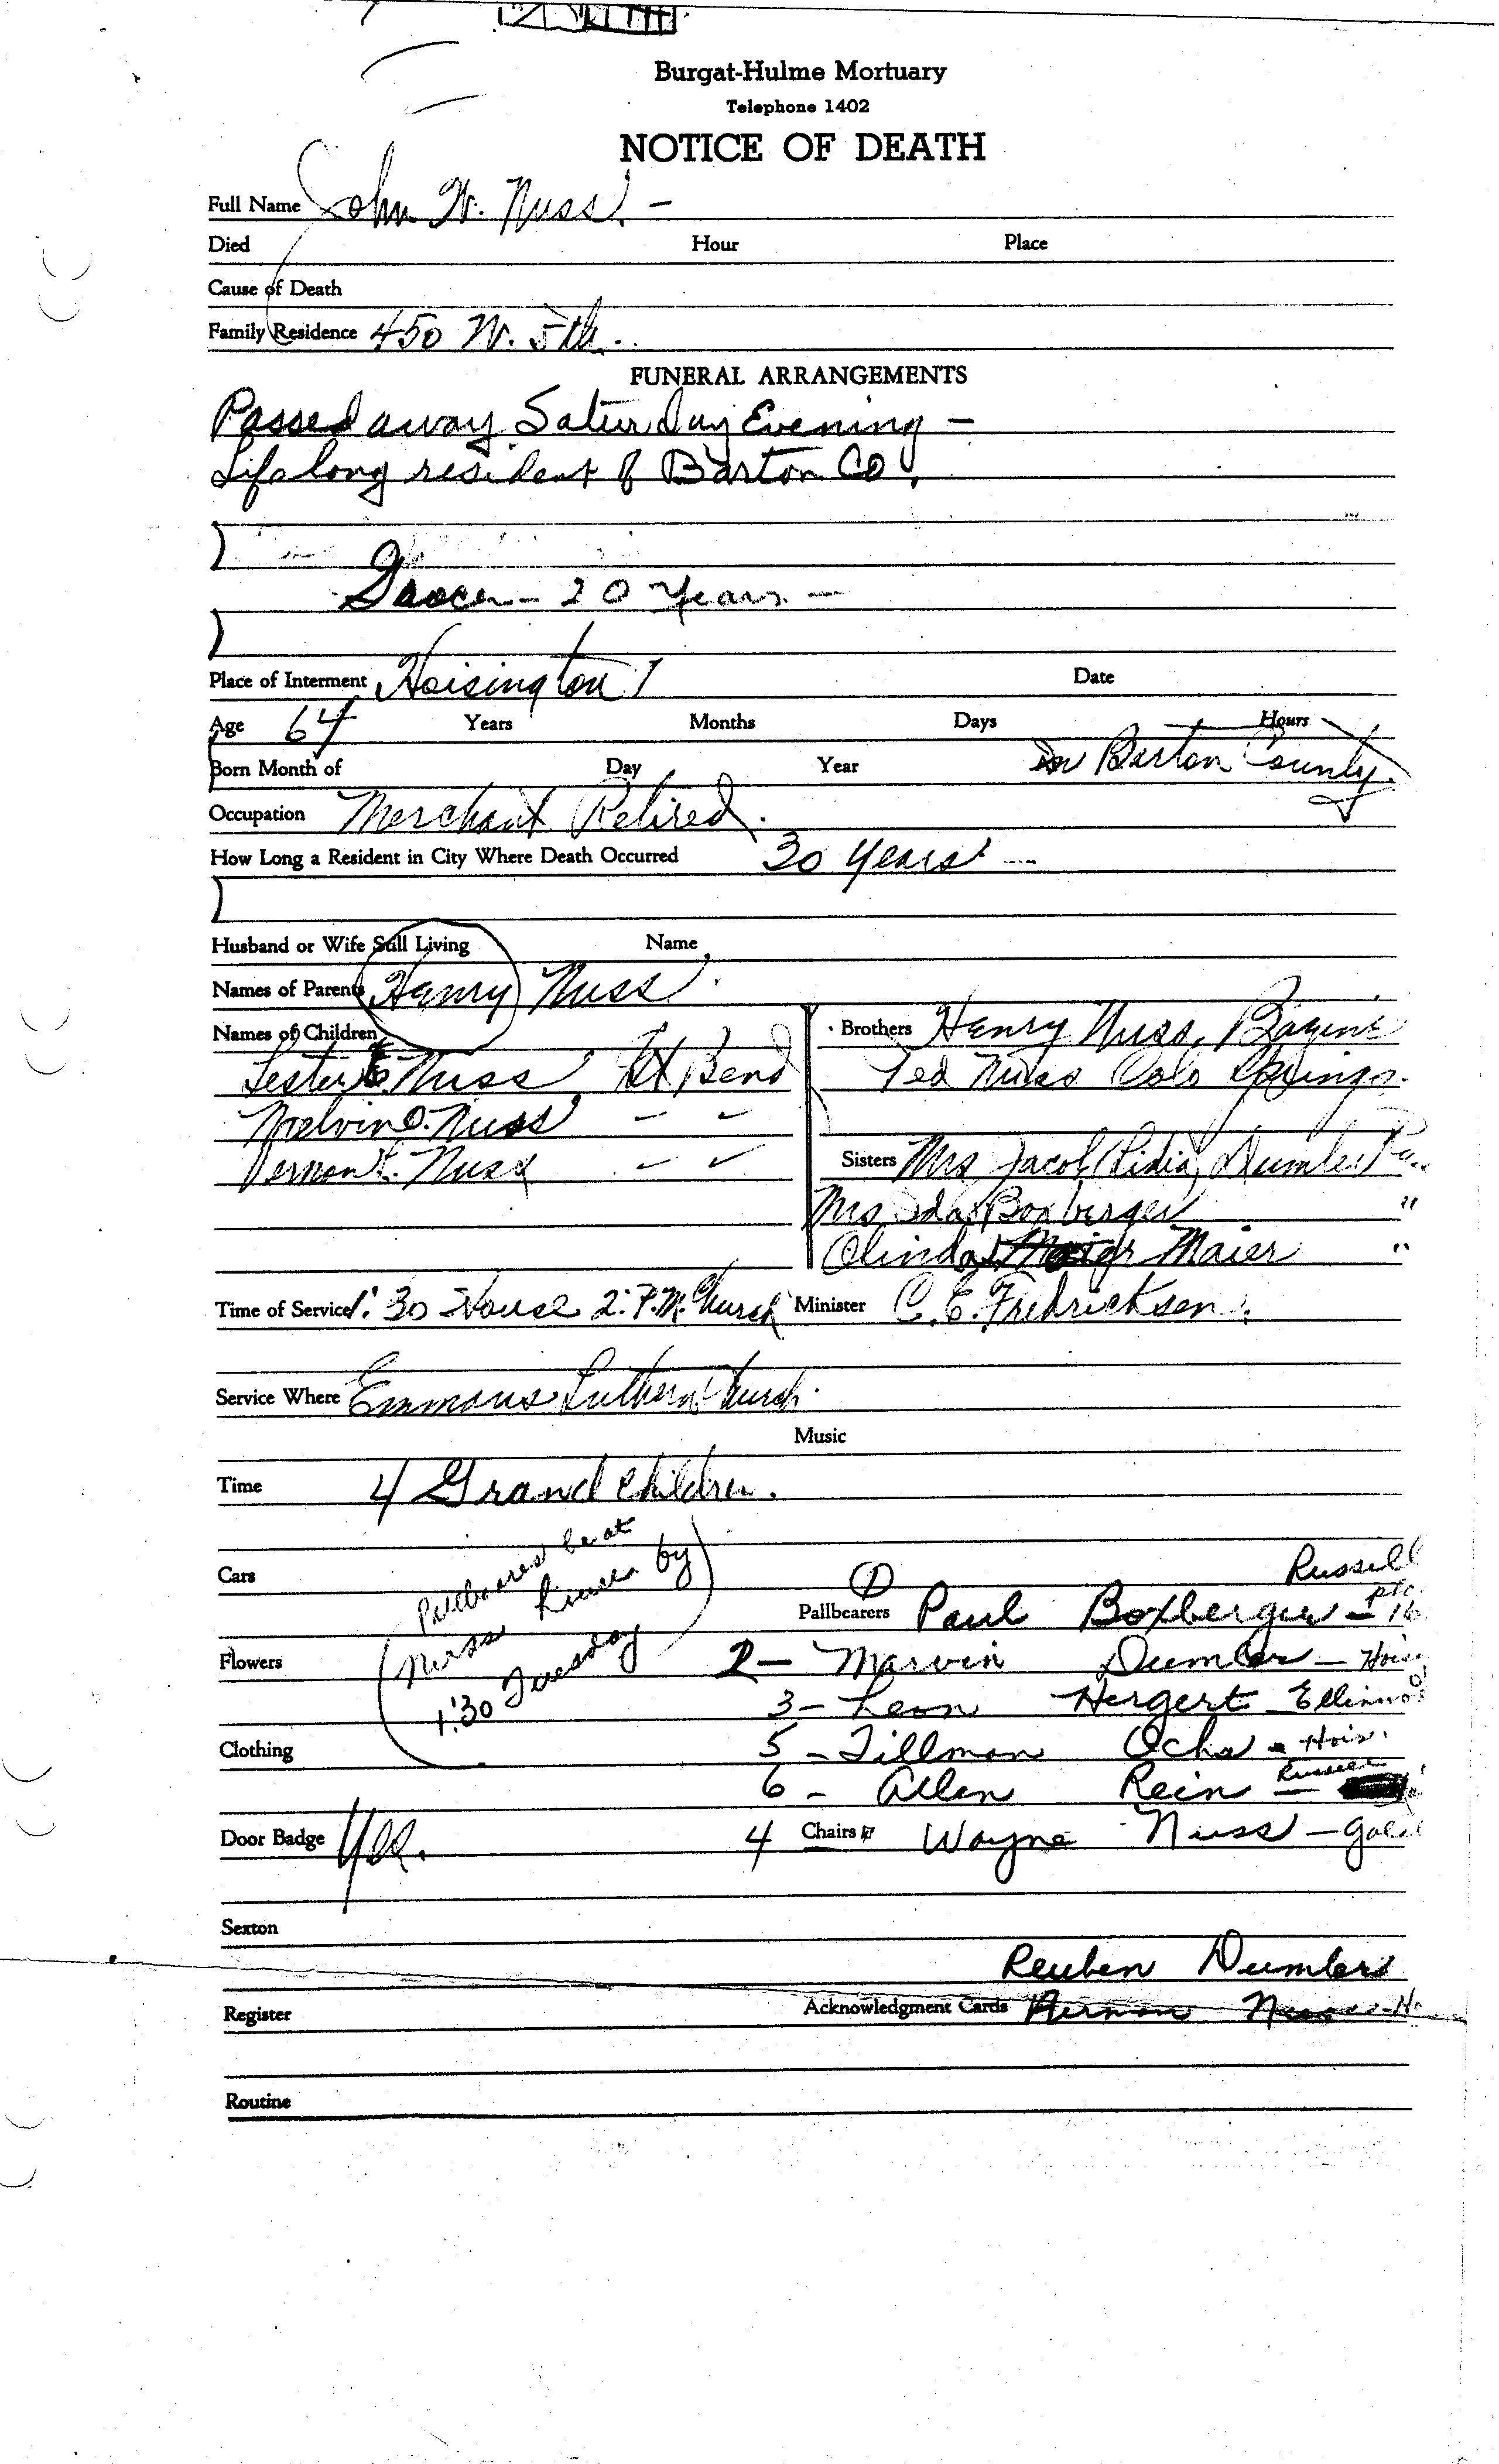 Burgat-Hulme Mortuary
Telephone 1402
NOTICE OF DEATH
Full Name John W. Nuss. -
Died Hour Place
Cause of Death
Family Residence 450 W. 5th.
FUNERAL ARRANGEMENTS
Passed away Saturday Evening -
Life long resident of Barton Co.
Grocer - 20 Years -
Place of Interment Hoisington Date
Age 64 Years Months Days Hours
Born Month of Day Year In Barton County.
Occupation Merchant Retired.
How Long a Resident in City Where Death Occurred 30 Years -
Husband or Wife Still Living Name
Names of Parents Henry Nuss
Names of Children Brothers Henry Nuss,
Lester E. Nuss Gt Bend Ted Nuss Colo Springs.
Melvin O. Nuss - -
Vernon L. Nuss - - Sisters Mrs Jacob Dumler
Mrs Ida Boxberger "
Olinda Maier "
Time of Service 1:30 House 2:P.M. Church Minister C. E. Fredricksen
Service Where Emmaus Luthern Church.
Music
Time 4 Grand Children.
Cars Pallbearers be at Russell
Nuss by Pallbearers 1 Paul Boxberger -
Flowers 1:30 Tuesday 2 - Marvin Dumler -
3 - Leon Hergert
Clothing 5 - Tillman Ochs - Hois.
6 - Allen Rein - Russell
Door Badge Yes. 4 Chairs Wayne Nuss -
Sexton
Reuben Dumler
Register Acknowledgment Cards Herman Nuss
Routine